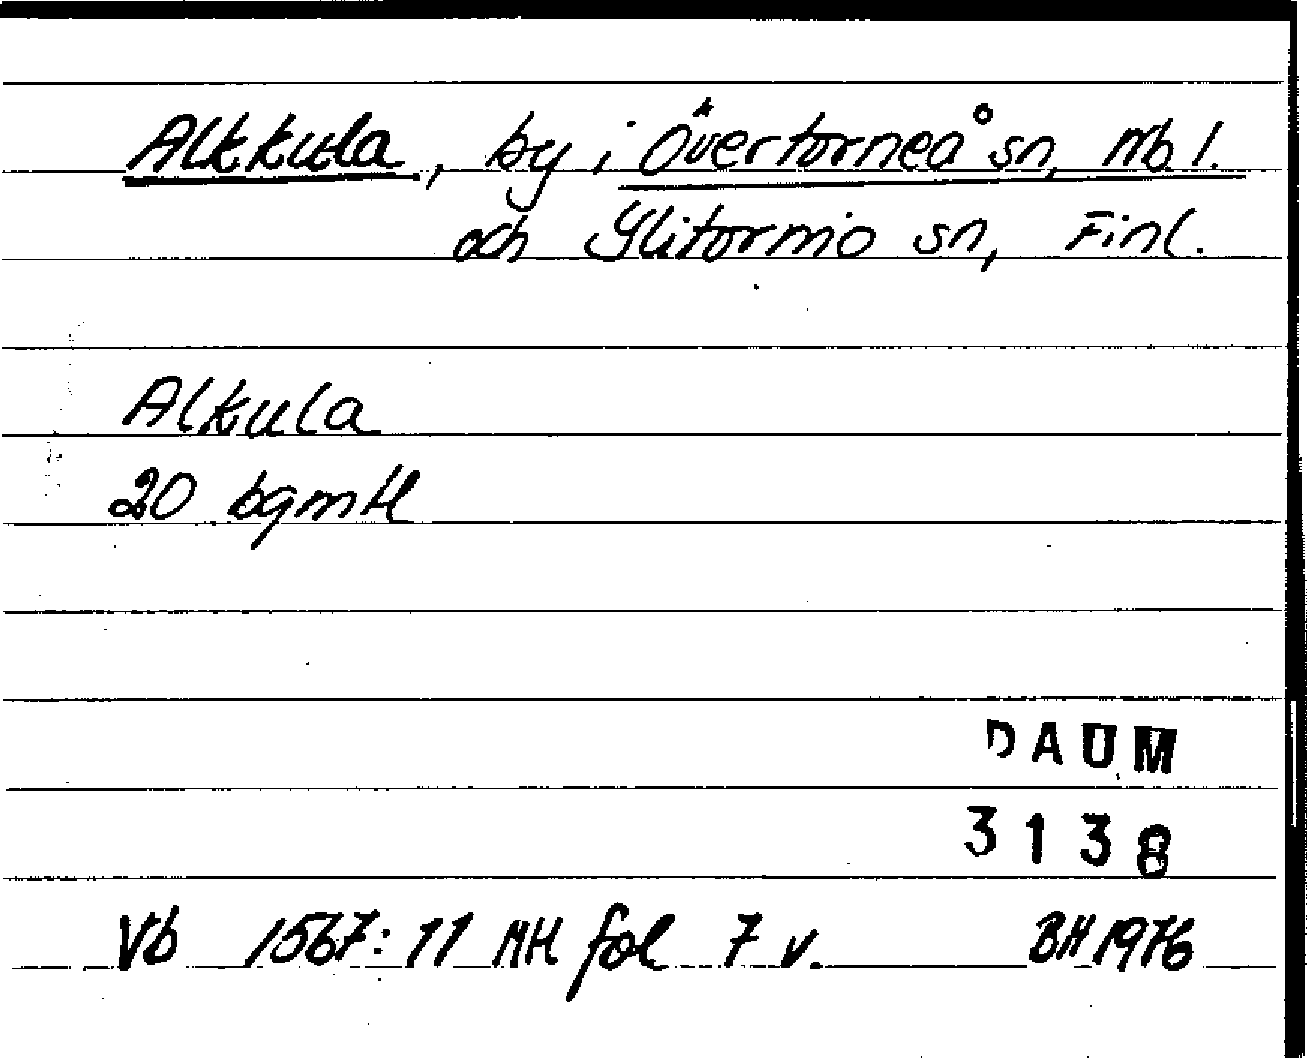 Alkkula, by i Övertorneå sn, Nb l.
och Ylitornio sn, Finl.
Alkula
20 bgmtl
DAUM
3138
Vb 1567:11 MH fol 7 v. BH 1976